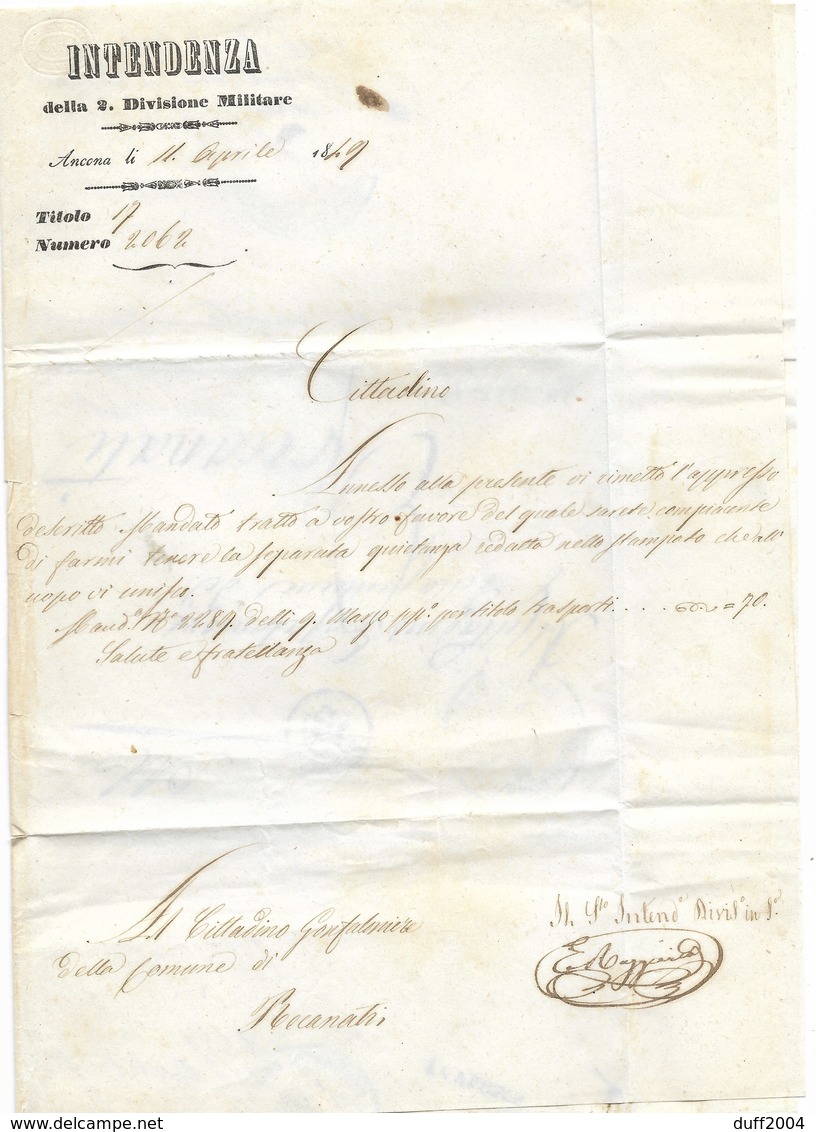 INTENDENZA
della 2. Divisione Militare
Ancona li 11. Aprile 1849
Titolo 17
Numero 2062
Cittadino
Annesso alla presente vi rimetto l'appresso
descritto Mandato tratto a vostro favore del quale sarete compiacente
di farmi tenere la separata quietanza redatta nello stampato che all'
uopo vi unisco.
Mand.o N.o 2289. delli 9. Marzo pp.o per titolo trasporti . . . . = 70.
Salute e fratellanza
Al Cittadino Gonfaloniere
della Comune di
Recanati
Il Intend.e Divis.o in
delcampe.net
duff2004